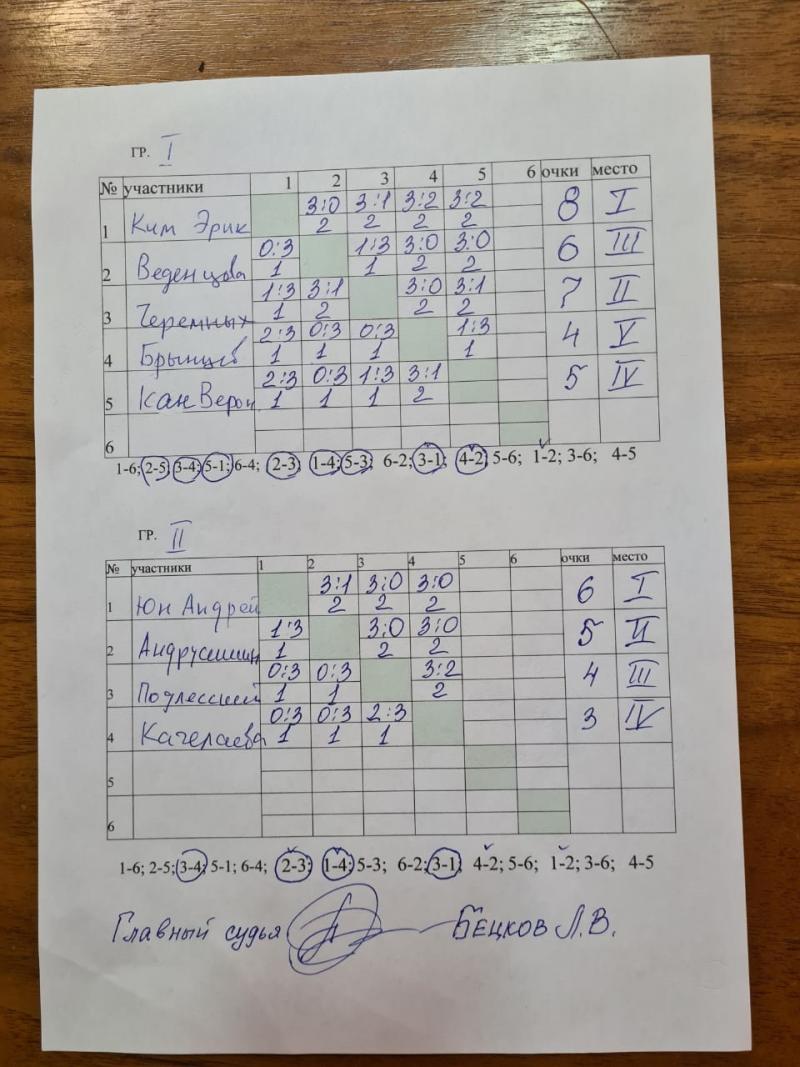 ГР. I
№ участники 1 2 3 4 5 6 очки место
3:0 3:1 3:2 3:2
1 Ким Эрик 2 2 2 2 8 I
0:3 1:3 3:0 3:0
2 Веденцова 1 1 2 2 6 III
1:3 3:1 3:0 3:1
3 Черемных 1 2 2 2 7 II
2:3 0:3 0:3 1:3
4 Брынцев 1 1 1 1 4 V
2:3 0:3 1:3 3:1
5 Кан Верон 1 1 1 2 5 IV
6
1-6; 2-5; 3-4; 5-1; 6-4; 2-3; 1-4; 5-3; 6-2; 3-1; 4-2; 5-6; 1-2; 3-6; 4-5
ГР. II
№ участники 1 2 3 4 5 6 очки место
3:1 3:0 3:0
1 Юн Андрей 2 2 2 6 I
1:3 3:0 3:0
2 1 2 2 5 II
0:3 0:3 3:2
3 1 1 2 4 III
0:3 0:3 2:3
4 Качелаева 1 1 1 3 IV
5
6
1-6; 2-5; 3-4; 5-1; 6-4; 2-3; 1-4; 5-3; 6-2; 3-1; 4-2; 5-6; 1-2; 3-6; 4-5
Главный судья Бецков Л.В.